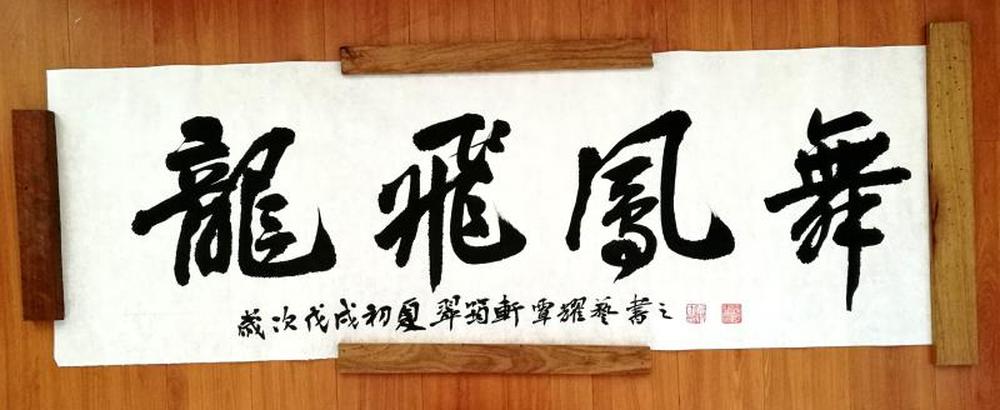 龍飛鳳舞
歲次戊戌初夏翠筠軒覃耀藝書之